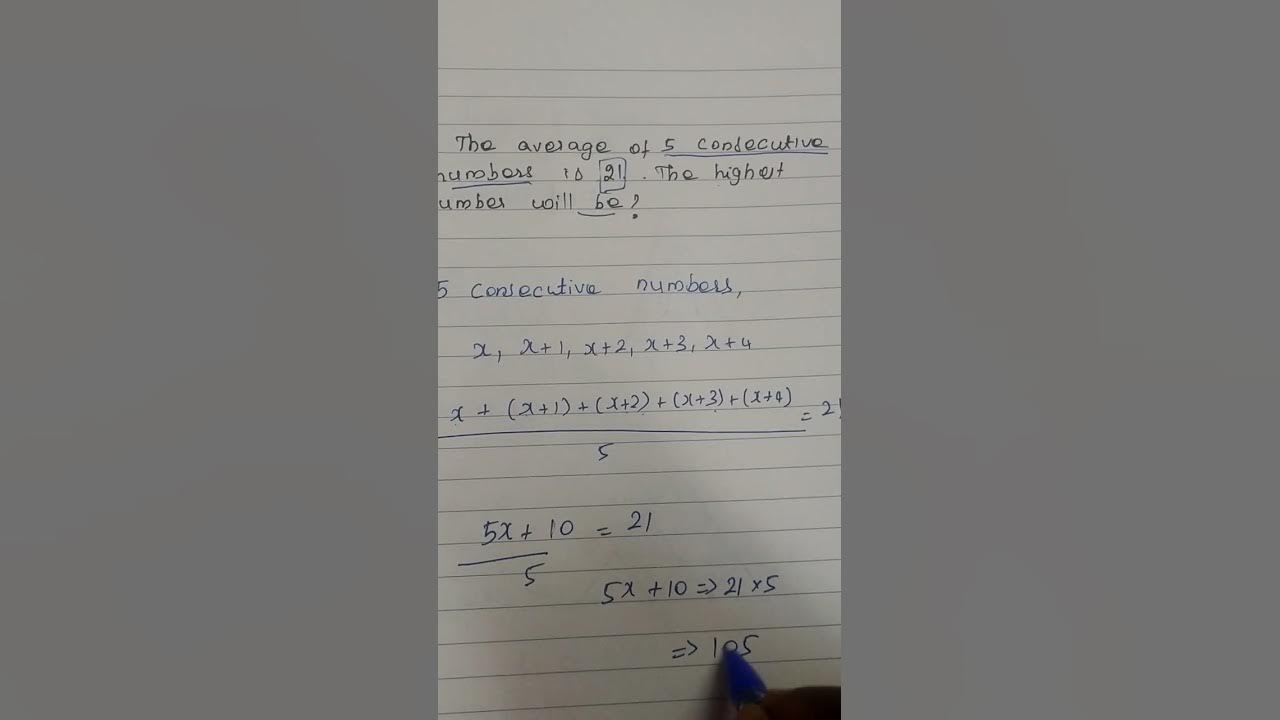 The average of 5 consecutive
numbers is 21. The highest
umber will be?
5 consecutive numbers,
x, x+1, x+2, x+3, x+4
x + (x+1) + (x+2) + (x+3) + (x+4) = 21
5
5x + 10 = 21
5
5x + 10 => 21 × 5
=> 105